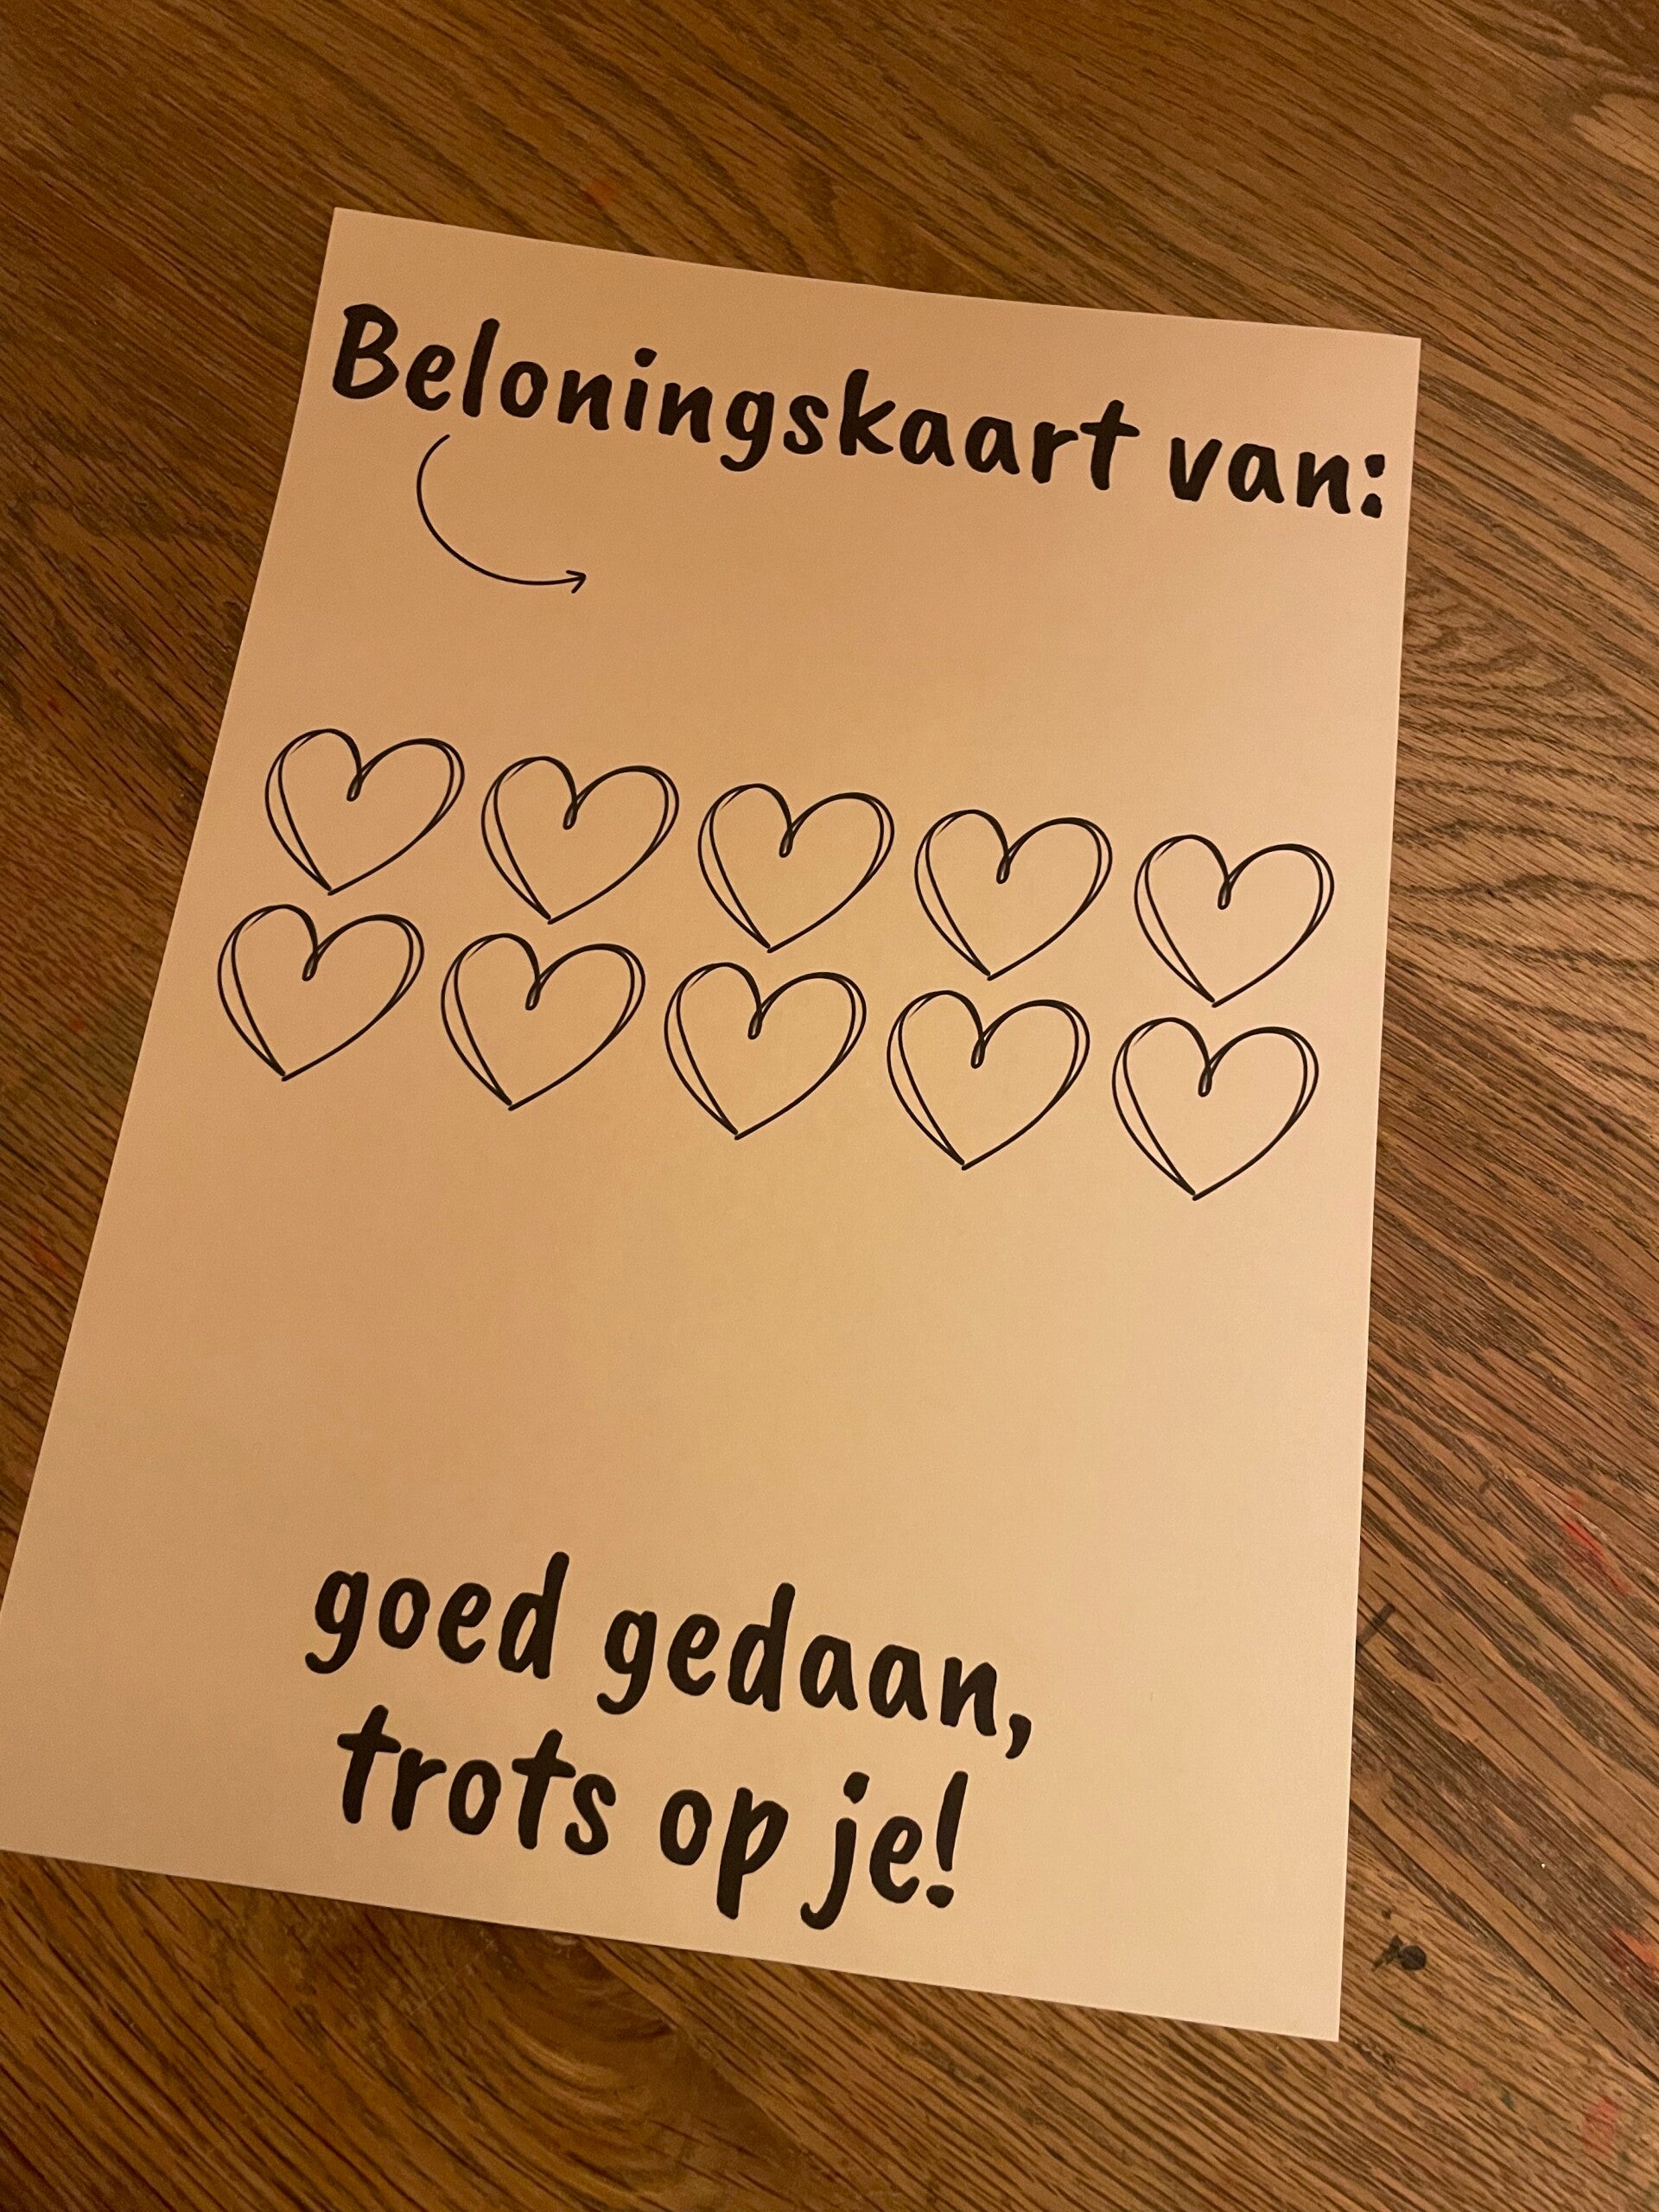 Beloningskaart van:
goed gedaan,
trots op je!